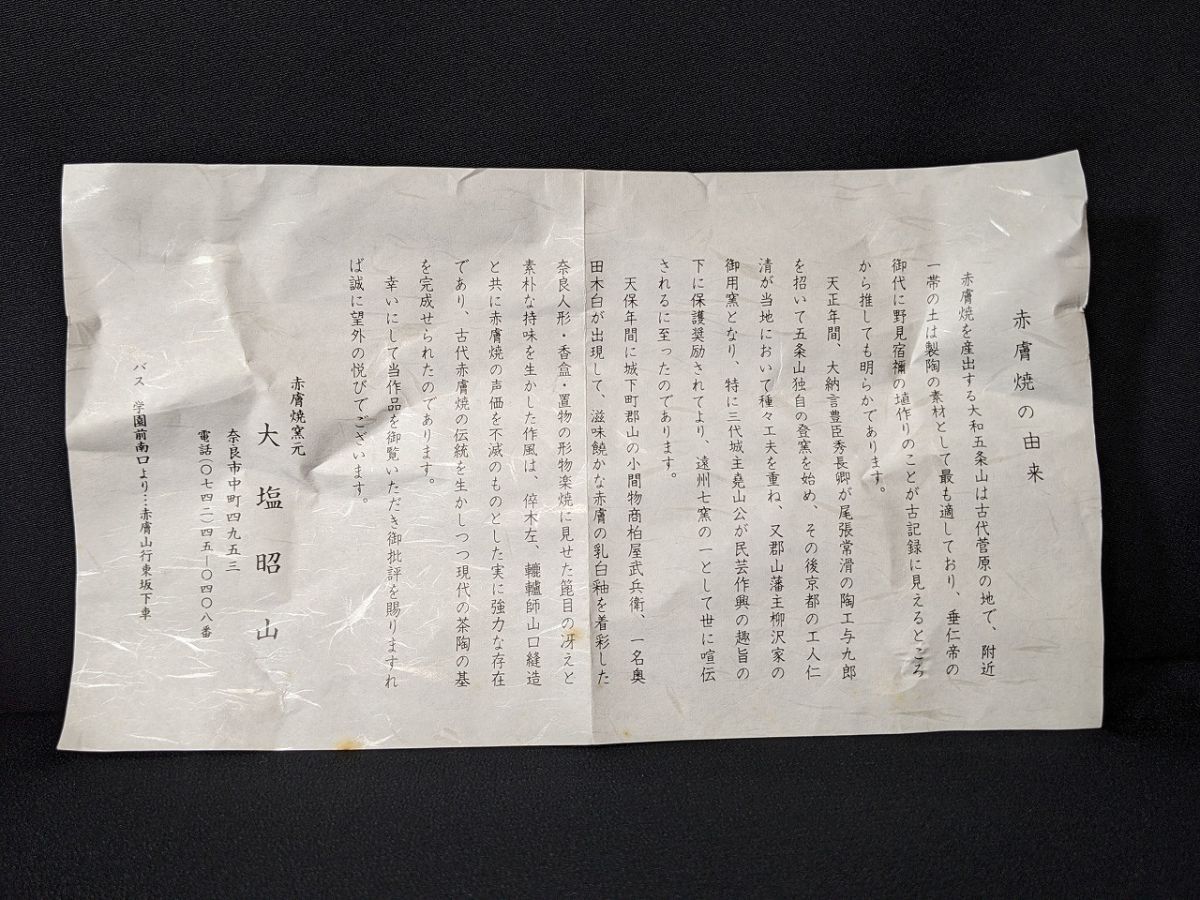 赤膚焼の由来
赤膚焼を産出する大和五条山は古代菅原の地で、附近
一帯の土は製陶の素材として最も適しており、垂仁帝の
御代に野見宿禰の埴作りのことが古記録に見えるところ
から推しても明らかであります。
天正年間、大納言豊臣秀長卿が尾張常滑の陶工与九郎
を招いて五条山独自の登窯を始め、その後京都の工人仁
清が当地において種々工夫を重ね、又郡山藩主柳沢家の
御用窯となり、特に三代城主堯山公が民芸作興の趣旨の
下に保護奨励されてより、遠州七窯の一として世に喧伝
されるに至ったのであります。
天保年間に城下町郡山の小間物商柏屋武兵衛、一名奥
田木白が出現して、滋味饒かな赤膚の乳白釉を着彩した
奈良人形・香盒・置物の形物楽焼に見せた箆目の冴えと
素朴な持味を生かした作風は、倅木左、轆轤師山口縫造
と共に赤膚焼の声価を不滅のものとした実に強力な存在
であり、古代赤膚焼の伝統を生かしつつ現代の茶陶の基
を完成せられたのであります。
幸いにして当作品を御覧いただき御批評を賜りますれ
ば誠に望外の悦びでございます。
赤膚焼窯元
大塩昭山
奈良市中町四九五三
電話(〇七四二)四五―〇四〇八番
バス 学園前南口より…赤膚山行東坂下車